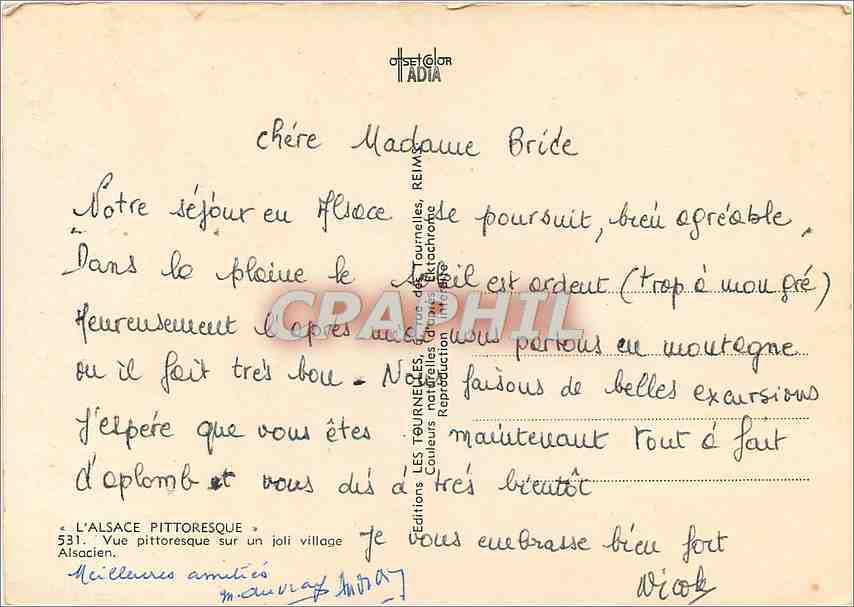 OFFSETCOLOR
ADIA
Chére Madame Bride
Notre séjour en Alsace se poursuit, bien agréable.
Dans la plaine le soleil est ardent (trop à mon gré)
Heureusement l'après midi nous partons en montagne
ou il fait très bon. Nous faisons de belles excursions
J'espére que vous êtes maintenant tout à fait
d'aplomb et vous dis à très bientôt
Je vous embrasse bien fort
Nicole
Meilleures amitiés
« L'ALSACE PITTORESQUE »
531. Vue pittoresque sur un joli village
Alsacien.
Editions LES TOURNELLES, rue des Tournelles, REIMS
Couleurs naturelles d'après Ektachrome
Reproduction interdite
CPAPHIL